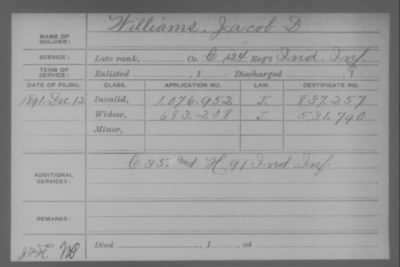 NAME OF SOLDIER: Williams, Jacob D
SERVICE: Late rank, Co. C 124 Reg't Ind. Inf.
TERM OF SERVICE: Enlisted , 1 Discharged , 1
DATE OF FILING. CLASS. APPLICATION NO. LAW. CERTIFICATE NO.
1891. Dec. 12 Invalid, 1,076.952 J. 837.257
Widow, 683.208 J. 531.790
Minor,
ADDITIONAL SERVICES: C 35. and H. 91 Ind Inf.
REMARKS:
Died , 1 , at